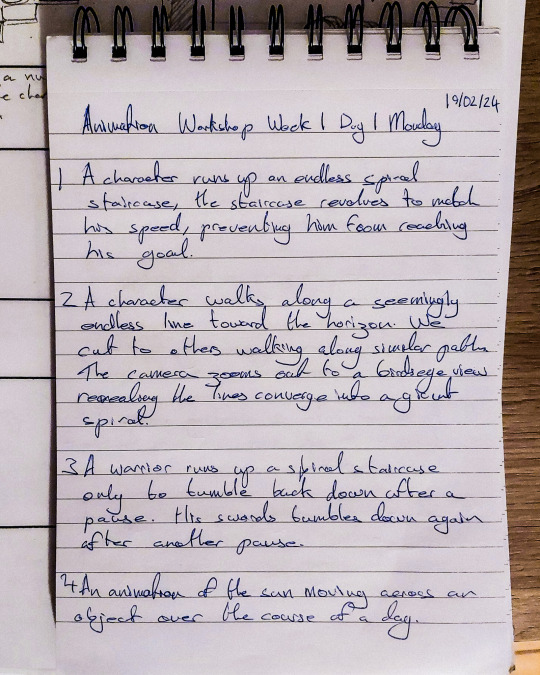 19/02/24
Animation Workshop Week 1 Day 1 Monday
1 A character runs up an endless spiral
staircase, the staircase revolves to match
his speed, preventing him from reaching
his goal.
2 A character walks along a seemingly
endless line toward the horizon. We
cut to others walking along similar paths.
The camera zooms out to a birdseye view
revealing the lines converge into a giant
spiral.
3 A warrior runs up a spiral staircase
only to tumble back down after a
pause. His swords tumbles down again
after another pause.
4 An animation of the sun moving across an
object over the course of a day.